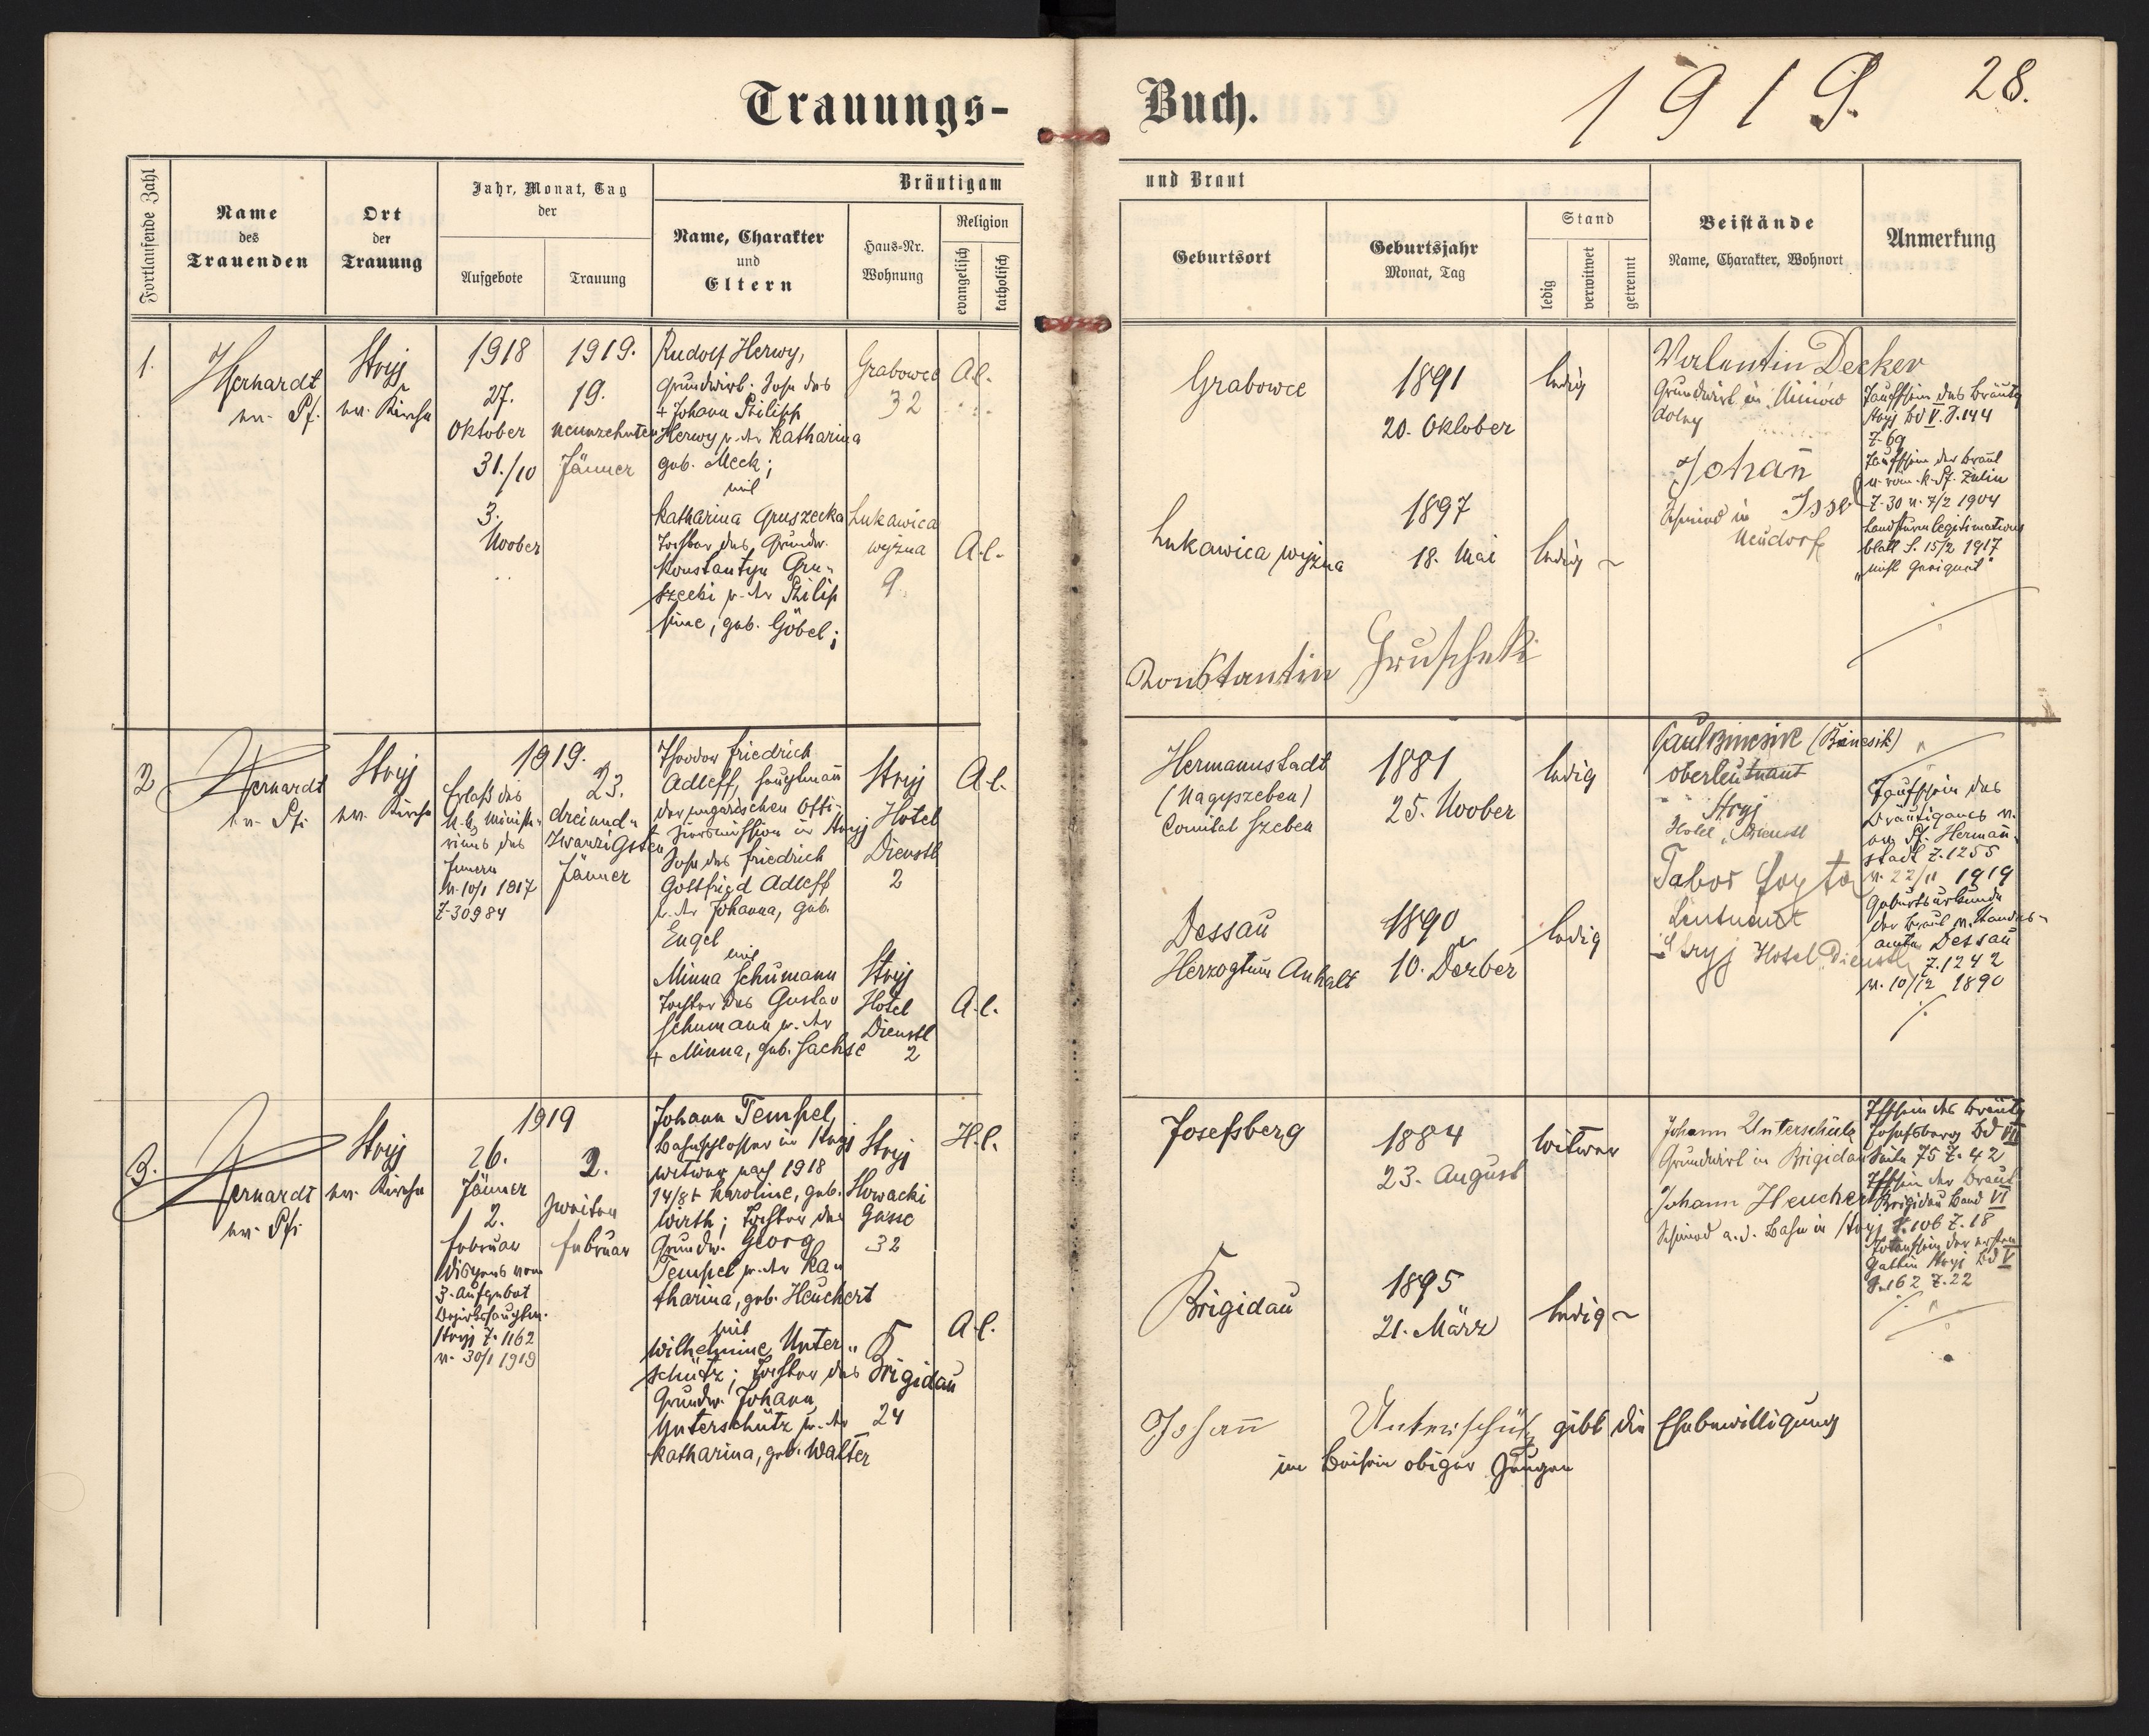 Trauungs-
Buch.
1919.
28.
Fortlaufende Zahl
Name
des
Trauenden
Ort
der
Trauung
Jahr, Monat, Tag
der
Aufgebote
Trauung
Bräutigam
Name, Charakter
und
Eltern
Haus-Nr.
Wohnung
Religion
evangelisch
katholisch
und Braut
Geburtsort
Geburtsjahr
Monat, Tag
Stand
ledig
verwitwet
getrennt
Beistände
Name, Charakter, Wohnort
Anmerkung
1.
Gerhardt
ev. Pf.
Stryj
ev. Kirche
1918
27.
Oktober
31./10
3.
Novber
1919.
19.
neunzehnten
Jänner
Rudolf Herwy,
Grundwirt. Sohn des
+ Johann Philipp
Herwy u. der Katharina
geb. Meck;
mit
Katharina Gruszecka
Tochter des Grundw.
Konstantyn Gru-
szecki u. der Philip
pine, geb. Göbel;
Grabowce
32
Lukawica
wyżna
9.
A.C.
A.C.
Grabowce
1891
20. Oktober
ledig
Lukawica wyżna
1897
18. Mai
ledig
Konstantin Gruscheki
Valentin Decker
Grundwirt in
dolny
Johan̄
Issel
Schmied in
Neudorf
Taufschein des Bräutg
Stryj Bd V. S. 144
Z. 69
Taufschein der Braut
v. röm. k. Pf. Zulin
Z. 30 v. 7/2 1904
Landsturmlegitimations
blatt S. 15/2 1917
"nicht Geeignet"
2
Gerhardt
ev. Pf.
Stryj
ev. Kirche
1919.
Erlaß des
k. u. Ministe-
riums des
Innern
v. 10/1 1917
Z. 30984
23.
dreiund-
zwanzigsten
Jänner
Theodor Friedrich
Adleff, Hauptmann
der ungarischen Offi-
ziersmission in Stryj
Sohn des Friedrich
Gottfried Adleff
u. der Johanna, geb.
Engel
mit
Minna Schumann
Tochter des Gustav
Schumann u. der
+ Minna, geb. Sachse
Stryj
Hotel
Dienstl
2
Stryj
Hotel
Dienstl
2
A.C.
A.C.
Hermannstadt
(Nagyszeben)
Comitat Szeben
1881
25. Novber
ledig
Dessau
Herzogtum Anhalt
1890
10. Dezber
ledig
Oberleutnant
Stryj
Hotel Dienstl
Leutnant
Stryj Hotel Dienstl
Taufschein des
Bräutigams v.
ev. Pf. Herman̄-
stadt Z. 1255
v. 22/11 1919
Geburtsurkunde
der Braut v. Standes-
amte Dessau
Z. 1242
v. 10/12 1890
3.
Gerhardt
ev. Pf.
Stryj
ev. Kirche
1919
26.
Jänner
2.
Februar
Dispens vom
3. Aufgebot
Bezirkshauptm.
Stryj Z. 1162
v. 30/1 1919
2.
zweiten
Februar
Johann Tempel,
Bahnschlosser in Stryj
Witwer nach 1918
14/8 + Karoline, geb.
Wirth; Tochter des
Grundw. Georg
Tempel u. der Ka-
tharina, geb. Heuchert
mit
Wilhelmine Unter-
schütz; Tochter des
Grundw. Johann
Unterschütz u. der
Katharina, geb. Walter
Stryj
Slowacki
Gasse
32
Brigidau
24
H.C.
A.C.
Josefsberg
1884
23. August
Witwer
Brigidau
1895
21. März
ledig
Johann Unterschütz
Grundwirt in Brigidau
Johann Heuchert
Schmied a. d. Bahn in Stryj
Tfschein des Bräutg
Josefsberg Bd VII
Seite 75 Z. 42
Tfschein der Braut
Brigidau Band VI
S. 106 Z. 18
Totenschein der ersten
Gattin Stryj Bd V
S. 162 Z. 22
Johan̄ Unterschütz gibt die Ehebewilligung
im Beisein obiger Zeugen